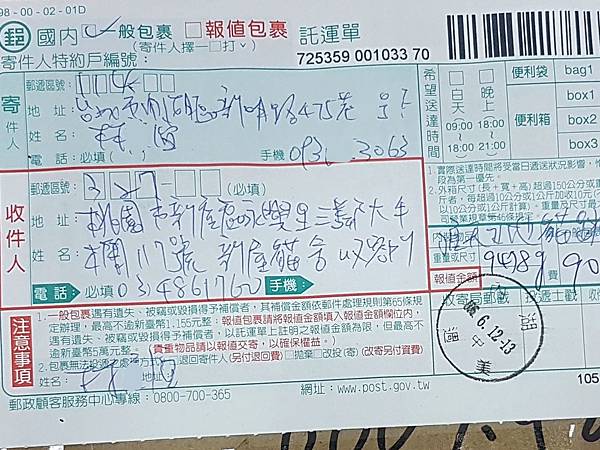 98-00-02-01D
郵 國內 一般包裹 □報值包裹 託運單
(寄件人擇一□打ˇ)
寄件人特約戶編號：
725359 001033 70
寄件人
郵遞區號：114
地 址：台北市內湖區新明路475巷 號
姓 名：林
電 話：必填( )
手機 093 3063
希望送達時間
□白天 (09:00~13:00)
□晚上 18:00 18:00 21:00
便利袋 bag1
便利箱 box1
box2
box3
收件人
郵遞區號：327 (必填)
地 址：桃園市新屋區永興里三鄰大牛
姓 名：欄117號 新屋貓舍 收
電 話：必填 03 4861760 手機：
1.實際送達時間將受當日遞送狀況影響，
段為第一優先。
2.外箱尺寸(長+寬+高)超過150公分或重
斤者，每超過10公分/1公斤加收10元(不
以10公分/1公斤計算)。重量及尺寸
司營業規章第46條規定
重量或尺寸 9498g 90
報值金額
收寄局郵戳
投遞士戳
注意事項
1.一般包裹遇有遺失、被竊或毀損得予補償者，其補償金額依郵件處理規則第65條規
定辦理，最高不逾新臺幣1,155元整。報值包裹請將報值金額填入報值金額欄位內，
遇有遺失、被竊或毀損得予補償者，以託運單上註明之報值金額為限，但最高不
逾新臺幣5萬元整。 貴重物品請以報值交寄，以確保權益。)
2.包裹無法投遞之處理方式 □退回寄件人(另付退回費) □拋棄 □改投(寄) (改寄另付資費)
姓名： 地址：
6.12-13
湖
美
郵政顧客服務中心專線：0800-700-365
網址：www.post.gov.tw
105